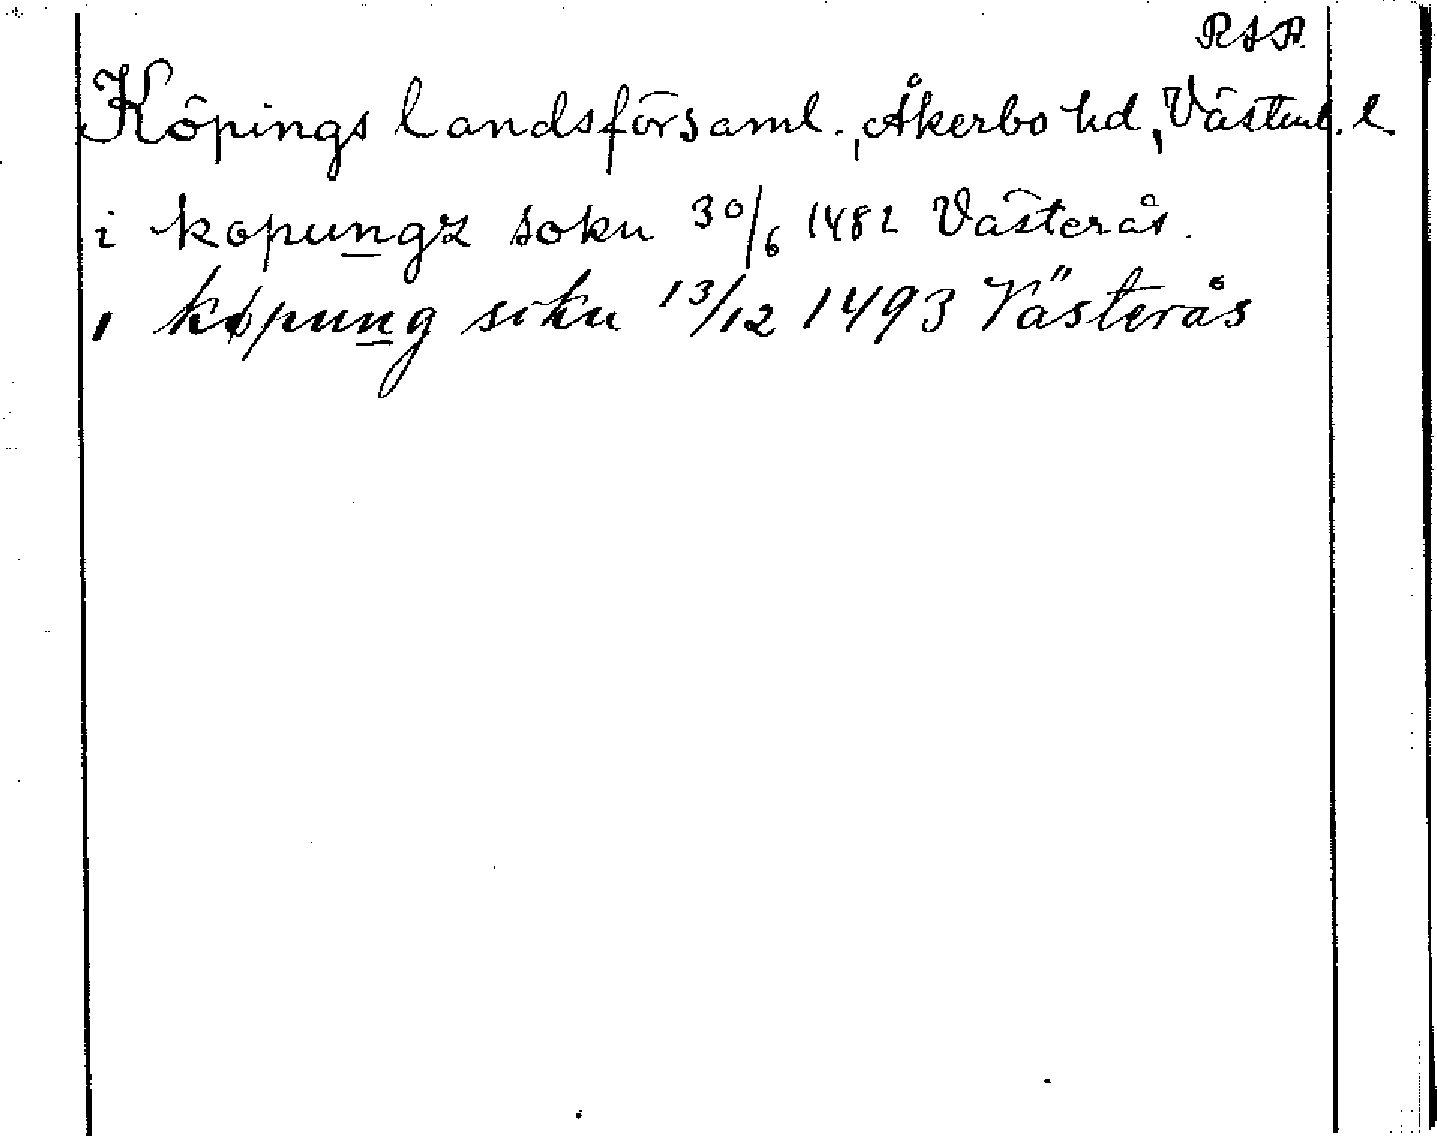 RAA.
Köpings landsförsaml., Åkerbo hd, Västml. l.
i kopungz soku 30/6 1482 Västerås.
i køpung soku 13/12 1493 Västerås